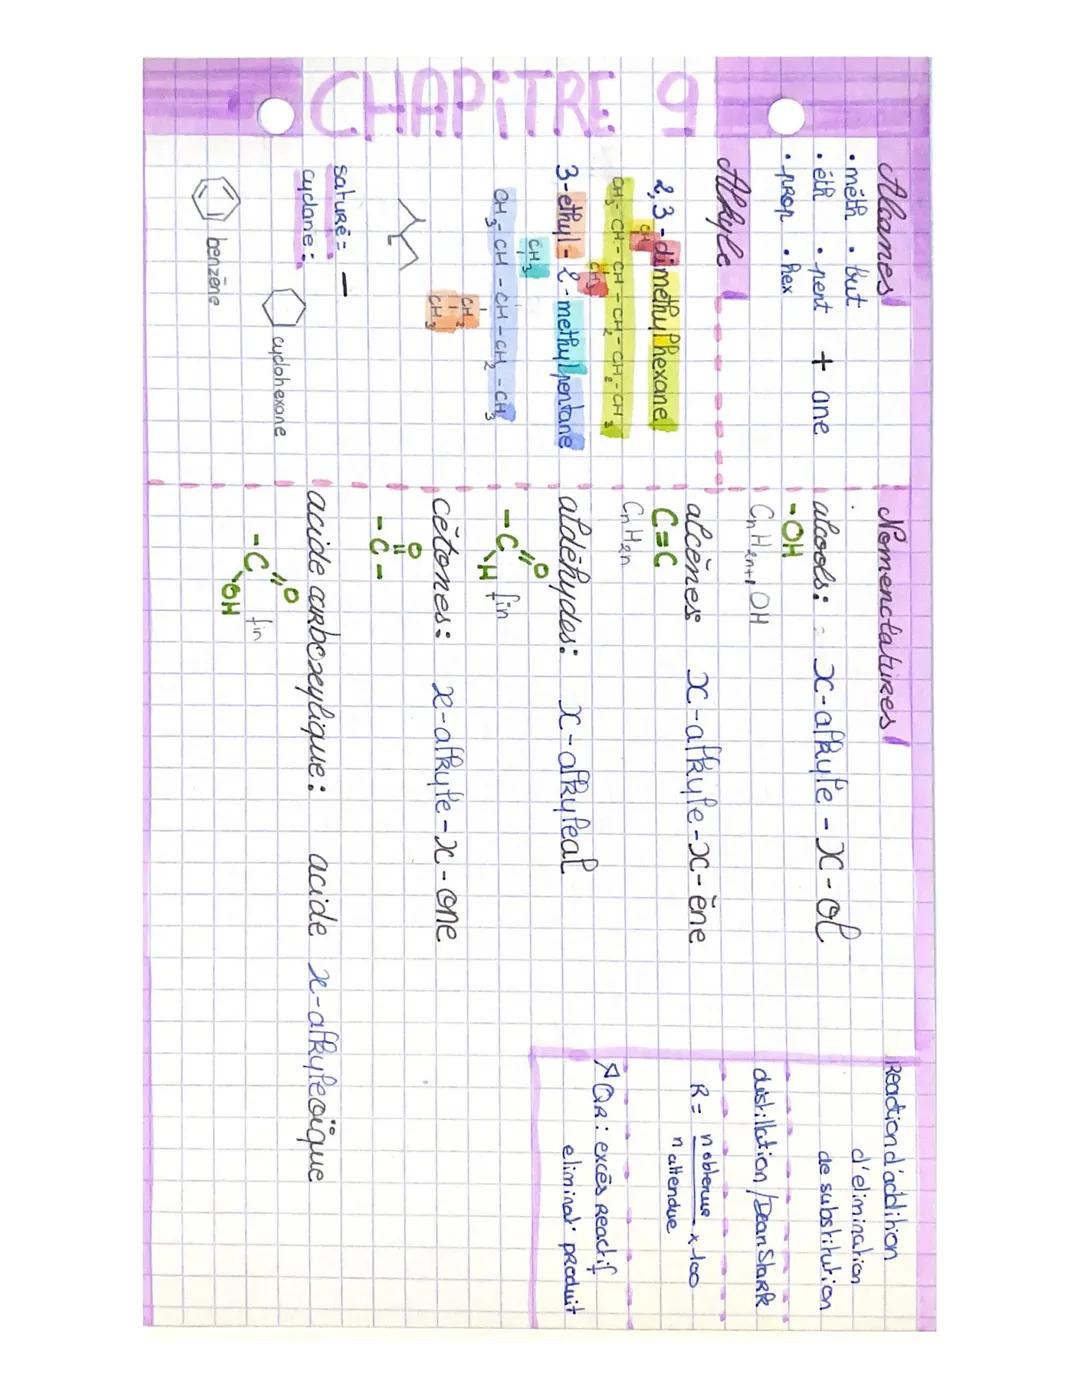 CHAPITRE 9
Alcanes
• méth • but
• éth • pent + ane
• prop • hex
Alkyle
2,3-diméthylhexane
CH3-CH-CH-CH2-CH2-CH3
CH3
CH3
3-ethyl-2-méthylpentane
CH3
CH3-CH-CH-CH2-CH3
CH2
CH3
saturé = —
cyclane :
cyclohexane
benzène
Nomenclatures
alcools : x-alkyle-x-ol
-OH
CnH2n+1OH
alcènes x-alkyle-x-ène
C=C
CnH2n
aldéhydes : x-alkyleal
O
-C
H fin
cétones : x-alkyle-x-one
O
-C-
acide carboxylique : acide x-alkyleoïque
O
-C fin
OH
Réaction d'addition
d'élimination
de substitution
distillation / Dean Stark
R = n obtenue / n attendue x 100
↗ QR : excès réactif
eliminat° produit